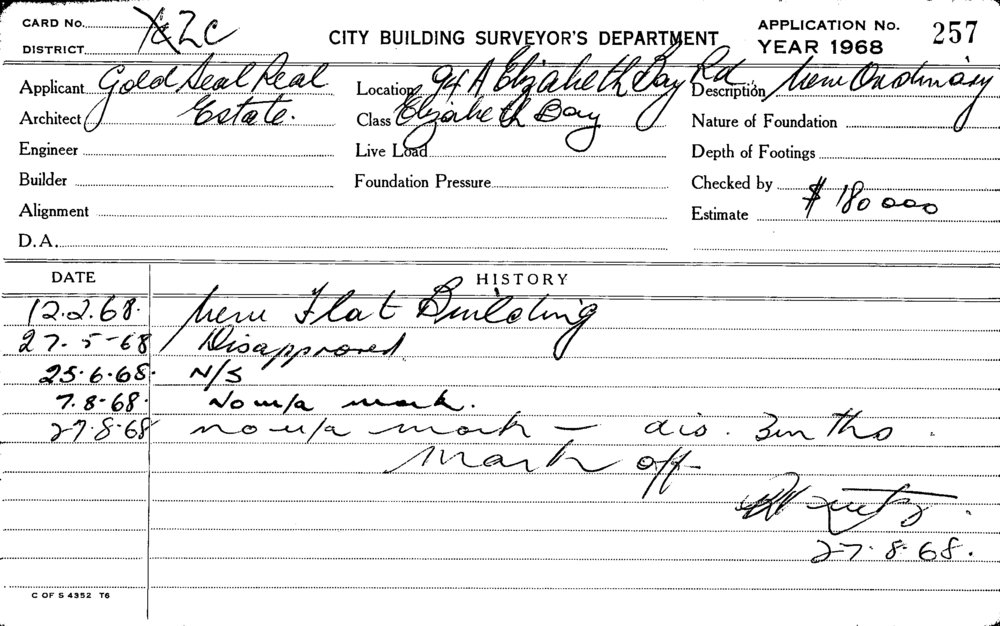 CARD No. Y&2C
DISTRICT
CITY BUILDING SURVEYOR'S DEPARTMENT
APPLICATION No. 257
YEAR 1968
Applicant Gold Seal Real
Architect Estate.
Engineer
Builder
Alignment
D.A.
Location 94A Elizabeth Bay Rd
Class Elizabeth Bay
Live Load
Foundation Pressure
Description New Ordinary
Nature of Foundation
Depth of Footings
Checked by
Estimate $ 180 000
DATE HISTORY
12.2.68. New Flat Building
27.5-68 Disapproved.
25.6.68. N/S
7.8-68. No w/a mark.
27.8.68 no w/a mark - dis. 3mths.
Mark off
27.8.68.
C OF S 4352 T6